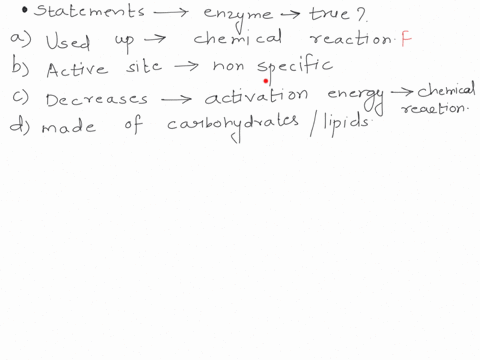 • Statements → enzyme → true?
a) Used up → chemical reaction. F
b) Active site → non specific
c) Decreases → activation energy → chemical reaction.
d) made of carbohydrates / lipids.